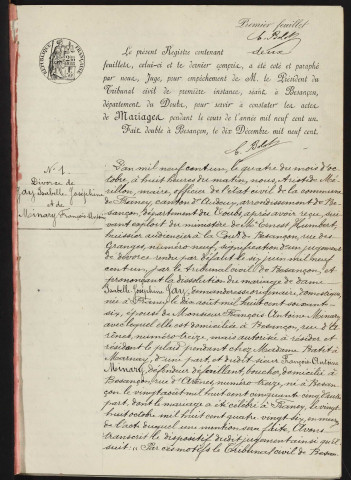 Premier feuillet
Le présent Registre contenant
feuillets, celui-ci et le dernier compris, a été coté et paraphé
par nous, Juge, pour empêchement de M. le Président du
Tribunal civil de première instance, séant à Besançon,
département du Doubs, pour servir à constater les actes
de Mariages pendant le cours de l'année mil neuf cent un.
Fait double à Besançon, le dix Décembre mil neuf cent.
N° 1
Divorce de
Jary Isabelle Joséphine
et de
Minary François Antoine
L'an mil neuf cent un, le quatre du mois d'oc-
tobre, à huit heures du matin, nous, Aristide Mé-
rillon, maire, officier de l'état civil de la commune
de Franey, canton d'Audeux, arrondissement de Be-
sançon, département du Doubs, après avoir reçu, sui-
vant exploit du ministère de Me Ernest Humbert,
huissier audiencier à la Cour de Besançon, rue des
Granges, numéro neuf, signification d'un jugement
de divorce rendu par défaut le six juin mil neuf
cent un, par le tribunal civil de Besançon, et
prononçant la dissolution du mariage de dame
Isabelle Joséphine Jary, domiciliée
née à le dix août mil huit cent soixante-
six, épouse de Monsieur François Antoine Minary,
avec lequel elle est domiciliée à Besançon, rue d'A-
rènes, numéro treize, mais autorisée à résider et
résidant le plaid pendant chez Madame
Marnay, d'une part, et dudit sieur François Antoine
Minary, défendeur défaillant, boucher, domicilié à
Besançon, rue d'Arènes, numéro treize, né à Besan-
çon le vingt août mil huit cent cinquante cinq, d'autre
part, dont le mariage a été célébré à Franey, le vingt
huit octobre mil huit cent quatre vingt six, en marge
de l'acte duquel une mention sera faite, Avons
transcrit le dispositif dudit jugement ainsi qu'il
suit: « Par ces motifs le Tribunal civil de Besan-